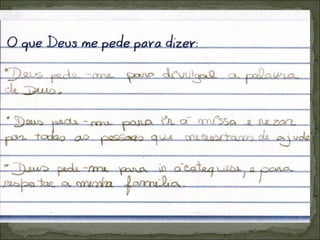 O que Deus me pede para dizer:
• Deus pede-me para divulgal a palavra
de Deus.
• Deus pede-me para ir á missa e rezar
por todas as pessoas que necesitam de ajuda
• Deus pede-me para ir á catequese, e para
respeitar a minha família.